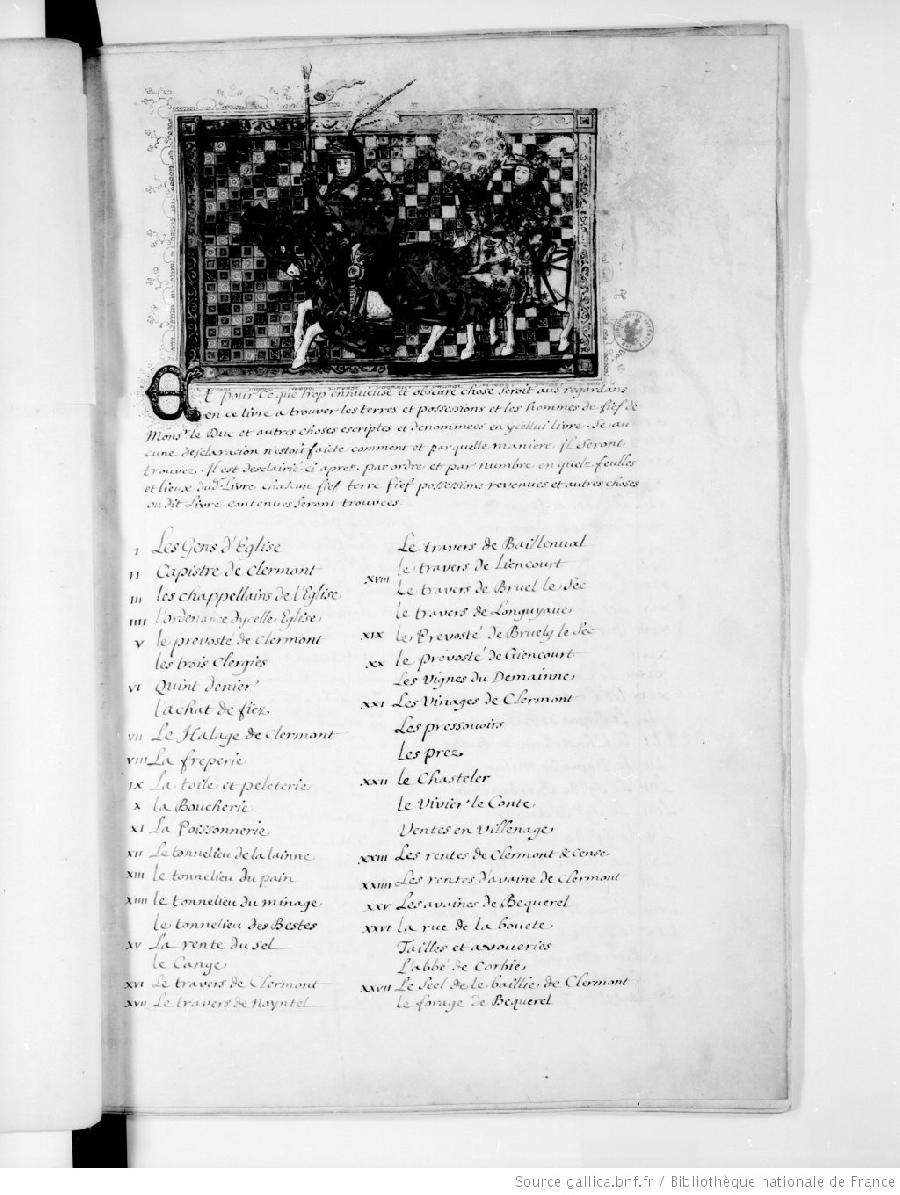 Et pour ce que trop ennuieuse et obscure chose seroit aus regardans
en ce livre a trouver les terres et possessions et les hommes de fief de
Monsr. le Duc et autres choses escriptes et denommees en ycellui livre. Se au
cune desclaration nestoit faicte comment et par quelle maniere jl seront
trouvez. Jl est desclairié ci apres. par ordre et par numbre en quelz feulles
et lieux dud. Livre chascun fief terre fief possessions revenues et autres choses
ou dit Livre contenues seront trouvees.
I Les Gens d'Eglise
II Capistre de Clermont
III les chappellains de l'Eglise
IIII l'ordenance dycelle Eglise
V le prevosté de Clermont
les trois Clergies
VI Quint denier
l'achat de fiez
VII Le Halage de Clermont
VIII La freperie
IX La toile et peleterie
X la Boucherie
XI La Poissonnerie
XII Le tonnelieu de la lainne
XIII le tonnelieu du pain
XIIII le tonnelieu du minage
le tonnelieu des Bestes
XV La rente du sel
le Cange
XVI Le travers de Clermont
XVII Le travers de Noyntel
Le travers de Baillenval
XVIII le travers de Liencourt
Le travers de Bruel le Sec
le travers de Longuyaue
XIX le Prevosté de Bruely le Sec
XX le prevosté de Giencourt
Les Vignes du Demainne
XXI Les Vinages de Clermont
Les pressouoirs
les prez
XXII le Chasteler
le Vivier le Conte
Ventes en Villenage
XXIII Les rentes de Clermont & Cense
XXIIII Les rentes d'avaine de Clermont
XXV Les avaines de Bequerel
XXVI la rue de la bouete
Tailles et avoueries
L'abbé de Corbie
XXVII Le Seel de le baillie de Clermont
le forage de Bequerel
Source gallica.bnf.fr / Bibliothèque nationale de France